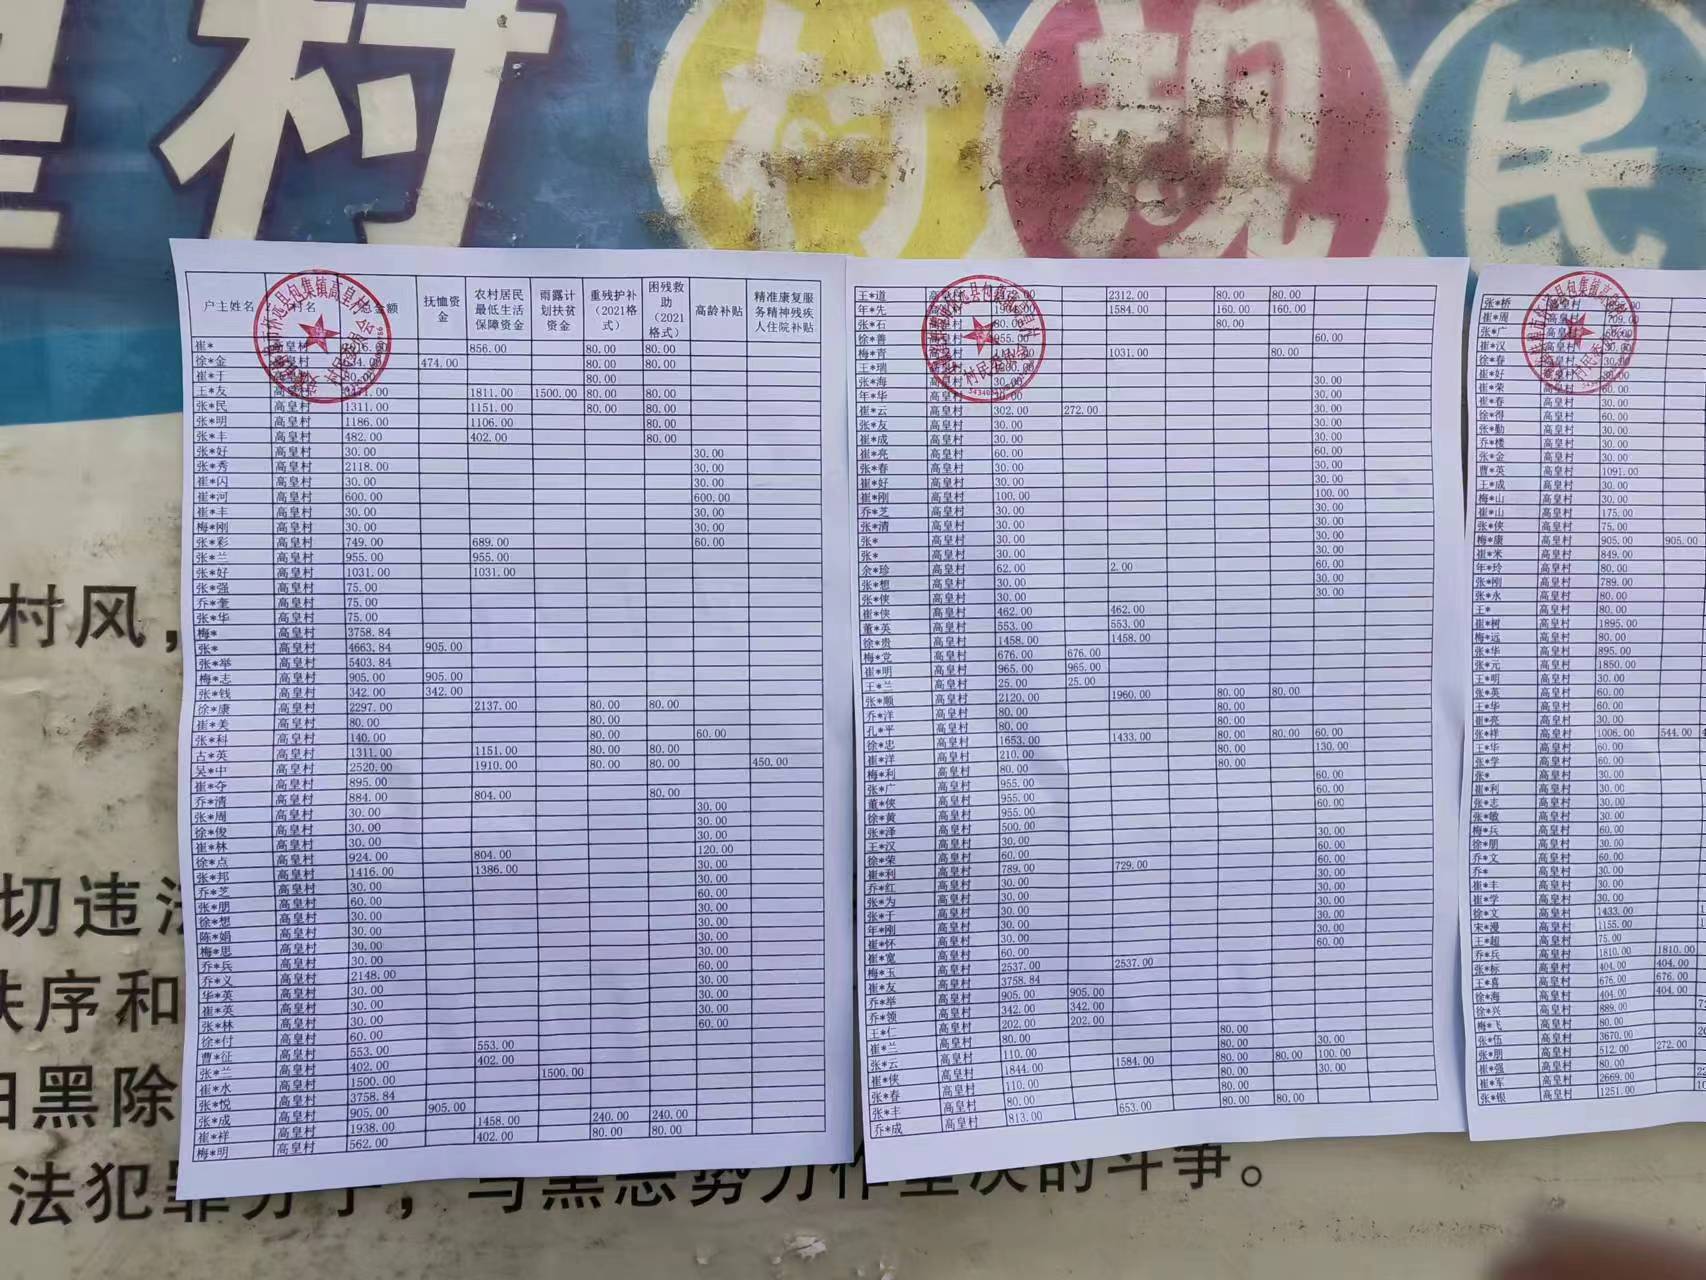 村 村规民
户主姓名 村名 总金额 抚恤资金 农村居民最低生活保障资金 雨露计划扶贫资金 重残护补(2021格式) 困残救助(2021格式) 高龄补贴 精准康复服务精神残疾人住院补贴
崔* 高皇村 856.00 80.00 80.00
徐*金 高皇村 474.00 80.00 80.00
崔*于 高皇村 80.00
王*友 高皇村 1811.00 1500.00 80.00 80.00
张*民 高皇村 1311.00 1151.00 80.00 80.00
张*明 高皇村 1186.00 1106.00 80.00
张*丰 高皇村 482.00 402.00 80.00
张*好 高皇村 30.00 30.00
张*秀 高皇村 2118.00 30.00
崔*闪 高皇村 30.00 30.00
崔*河 高皇村 600.00 600.00
崔*丰 高皇村 30.00 30.00
梅*刚 高皇村 30.00 30.00
张*彩 高皇村 749.00 689.00 60.00
张*兰 高皇村 955.00 955.00
张*好 高皇村 1031.00 1031.00
张*强 高皇村 75.00
乔*奎 高皇村 75.00
张*华 高皇村 75.00
梅* 高皇村 3758.84
张* 高皇村 4663.84 905.00
张*举 高皇村 5403.84
梅*志 高皇村 905.00 905.00
张*钱 高皇村 342.00 342.00
徐*康 高皇村 2297.00 2137.00 80.00 80.00
崔*美 高皇村 80.00 80.00
张*科 高皇村 140.00 80.00 60.00
古*英 高皇村 1311.00 1151.00 80.00 80.00
吴*中 高皇村 2520.00 1910.00 80.00 80.00 450.00
崔*夺 高皇村 895.00
乔*清 高皇村 884.00 804.00 80.00
张*周 高皇村 30.00 30.00
徐*俊 高皇村 30.00 30.00
崔*林 高皇村 30.00 30.00
徐*点 高皇村 924.00 804.00 120.00
张*邦 高皇村 1416.00 1386.00 30.00
乔*芝 高皇村 30.00 30.00
张*朋 高皇村 60.00 60.00
徐*想 高皇村 30.00 30.00
陈*娟 高皇村 30.00 30.00
梅*思 高皇村 30.00 30.00
乔*兵 高皇村 30.00 30.00
乔*义 高皇村 2148.00 60.00
华*英 高皇村 30.00 30.00
崔*英 高皇村 30.00 30.00
张*林 高皇村 30.00 30.00
徐*付 高皇村 60.00 60.00
曹*征 高皇村 553.00 553.00
张*兰 高皇村 402.00 402.00
崔*水 高皇村 1500.00 1500.00
张*悦 高皇村 3758.84
张*成 高皇村 905.00 905.00
崔*祥 高皇村 1938.00 1458.00 240.00 240.00
梅*明 高皇村 562.00 402.00 80.00 80.00
王*道 高皇村 2312.00 80.00 80.00
年*先 高皇村 1584.00 160.00 160.00
张*石 高皇村 80.00 80.00
徐*善 高皇村 955.00 60.00
梅*青 高皇村 1031.00 80.00
王*瑞 高皇村
张*海 高皇村 30.00 30.00
年*华 高皇村 30.00 30.00
崔*云 高皇村 302.00 272.00 30.00
张*友 高皇村 30.00 30.00
崔*成 高皇村 30.00 30.00
崔*亮 高皇村 60.00 60.00
张*春 高皇村 30.00 30.00
崔*好 高皇村 30.00 30.00
崔*刚 高皇村 100.00 100.00
乔*芝 高皇村 30.00 30.00
张*清 高皇村 30.00 30.00
张* 高皇村 30.00 30.00
张* 高皇村 30.00 30.00
余*珍 高皇村 62.00 2.00 60.00
张*想 高皇村 30.00 30.00
张*侠 高皇村 30.00 30.00
崔*侠 高皇村 462.00 462.00
董*英 高皇村 553.00 553.00
徐*贵 高皇村 1458.00 1458.00
梅*党 高皇村 676.00 676.00
崔*明 高皇村 965.00 965.00
王*兰 高皇村 25.00 25.00
张*顺 高皇村 2120.00 1960.00 80.00 80.00
乔*洋 高皇村 80.00 80.00
孔*平 高皇村 80.00 80.00
徐*忠 高皇村 1653.00 1433.00 80.00 80.00 60.00
崔*洋 高皇村 210.00 80.00 130.00
梅*利 高皇村 80.00 80.00
张*广 高皇村 955.00 60.00
董*侠 高皇村 955.00 60.00
徐*黄 高皇村 955.00 60.00
张*泽 高皇村 500.00
王*汉 高皇村 30.00 30.00
徐*荣 高皇村 60.00 60.00
崔*利 高皇村 789.00 729.00 60.00
乔*红 高皇村 30.00 30.00
张*为 高皇村 30.00 30.00
张*于 高皇村 30.00 30.00
年*刚 高皇村 30.00 30.00
崔*怀 高皇村 30.00 30.00
崔*宽 高皇村 60.00 60.00
梅*玉 高皇村 2537.00 2537.00
崔*友 高皇村 3758.84
乔*举 高皇村 905.00 905.00
乔*领 高皇村 342.00 342.00
王*仁 高皇村 202.00 202.00
崔*兰 高皇村 80.00 80.00
张*云 高皇村 110.00 80.00 30.00
崔*侠 高皇村 1844.00 1584.00 80.00 80.00 100.00
张*春 高皇村 110.00 80.00 30.00
张*丰 高皇村 80.00 80.00
乔*成 高皇村 813.00 653.00 80.00 80.00
张*桥 高皇村
崔*周 高皇村 709.00
张*广 高皇村 60.00
崔*汉 高皇村 30.00
徐*春 高皇村 30.00
崔*好 高皇村 30.00
崔*荣 高皇村 60.00
崔*春 高皇村 30.00
徐*得 高皇村 60.00
张*勤 高皇村 30.00
乔*楼 高皇村 30.00
张*金 高皇村 30.00
曹*英 高皇村 1091.00
王*成 高皇村 30.00
梅*山 高皇村 30.00
崔*山 高皇村 175.00
张*侠 高皇村 75.00
梅*康 高皇村 905.00 905.00
崔*米 高皇村 849.00
年*玲 高皇村 80.00
张*刚 高皇村 789.00
张*永 高皇村 80.00
王* 高皇村 80.00
崔*树 高皇村 1895.00
梅*远 高皇村 80.00
张*华 高皇村 895.00
张*元 高皇村 1850.00
王*明 高皇村 30.00
张*英 高皇村 60.00
王*华 高皇村 60.00
崔*亮 高皇村 30.00
张*祥 高皇村 1006.00 544.00
王*华 高皇村 60.00
张*学 高皇村 60.00
张* 高皇村 30.00
崔*利 高皇村 30.00
张*志 高皇村 30.00
张*敏 高皇村 30.00
梅*兵 高皇村 60.00
徐*朋 高皇村 30.00
乔*文 高皇村 60.00
乔* 高皇村 30.00
崔*丰 高皇村 30.00
崔*学 高皇村 30.00
徐*文 高皇村 1433.00
宋*漫 高皇村 1155.00
王*超 高皇村 75.00
乔*兵 高皇村 1810.00 1810.00
张*标 高皇村 404.00 404.00
王*喜 高皇村 676.00 676.00
徐*海 高皇村 404.00 404.00
徐*兴 高皇村 889.00
梅*飞 高皇村 80.00
张*伍 高皇村 3670.00
张*朋 高皇村 512.00 272.00
崔*强 高皇村 80.00
崔*军 高皇村 2669.00
张*根 高皇村 1251.00
村风，
切违法
秩序和
扫黑除
法犯罪分子，与黑恶势力作坚决的斗争。